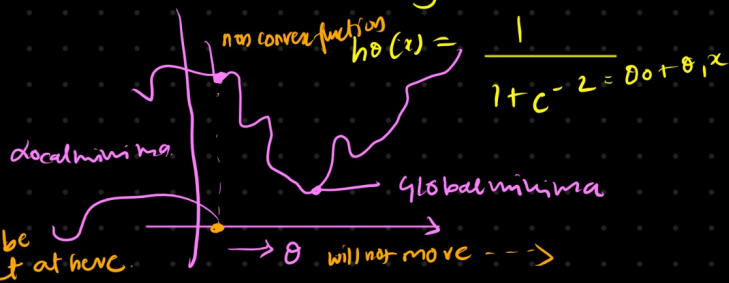 non convex function
hθ(x) = 1 / 1 + c^-z = θ0 + θ1x
Local minima
Global minima
be
t at here.
→ θ will not move - - - >